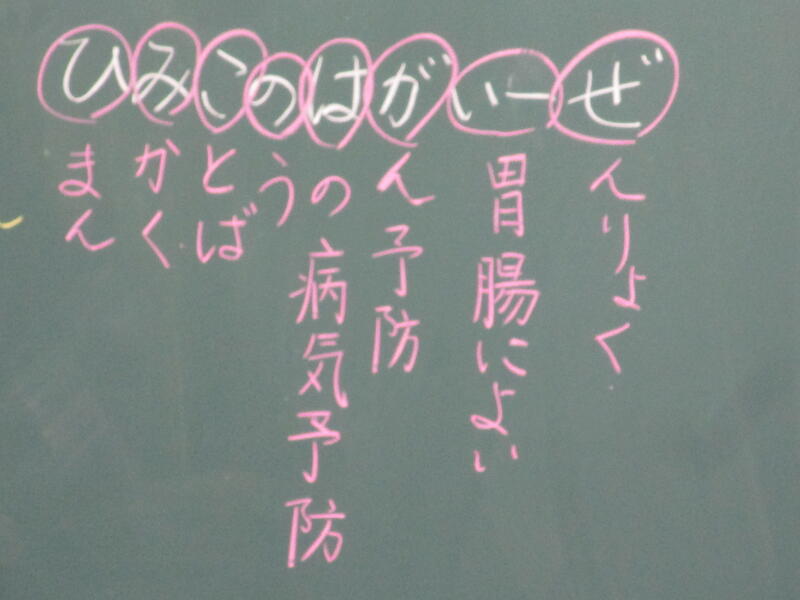 ひみこのはがいーぜ
まん
かく
とば
う
の病気予防
ん予防
胃腸によい
んりょく